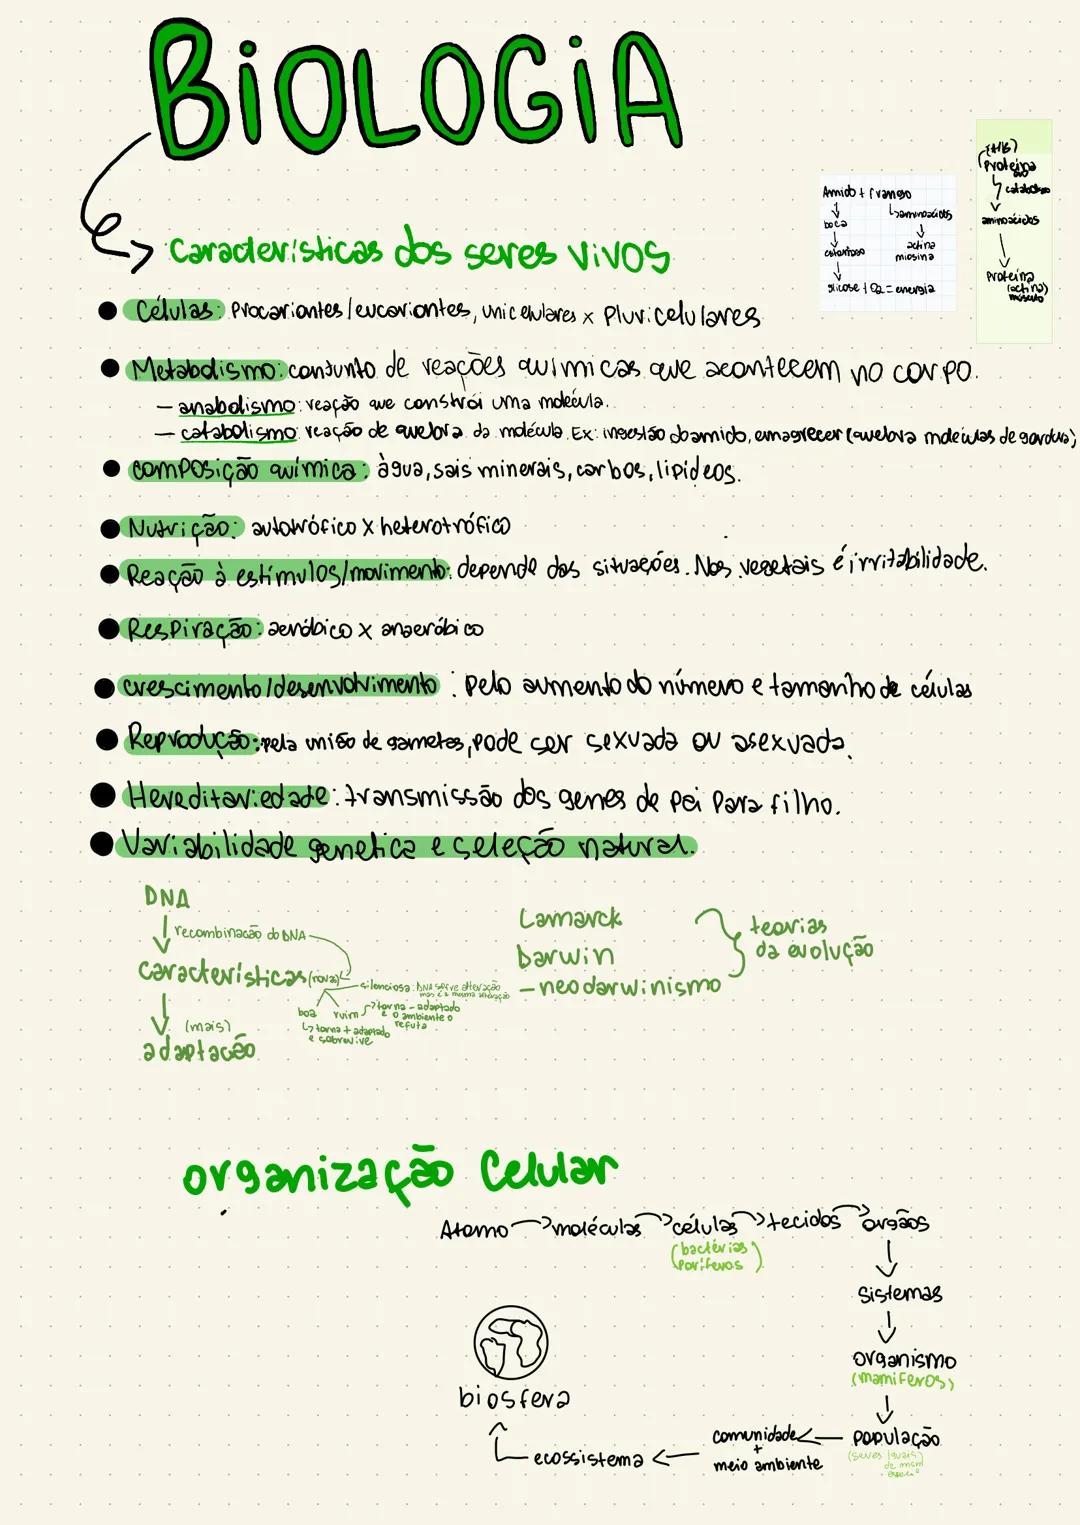 BiOLOGiA
Características dos seres vivos
Amido + frango
boca
↳aminoácidos
estômago
actina
miosina
glicose + O2 = energia
Proteína
catabolismo
aminoácidos
Proteína
(actina)
músculo
Células: Procariontes/eucariontes, unicelulares x Pluricelulares
Metabolismo: conjunto de reações químicas que acontecem no corpo.
- anabolismo: reação que constrói uma molécula.
- catabolismo: reação de quebra da molécula. Ex: ingestão do amido, emagrecer (quebra moléculas de gordura)
composição química: àgua, sais minerais, carbos, lipídeos.
Nutrição: autotrófico x heterotrófico
Reação à estímulos/movimento: depende das situações. Nos vegetais é irritabilidade.
Respiração: aeróbico x anaeróbico
crescimento/desenvolvimento: Pelo aumento do número e tamanho de células
Reprodução: pela união de gametas, pode ser sexuada ou asexuada.
Hereditariedade: transmissão dos genes de pai para filho.
Variabilidade genetica e seleção natural.
DNA
recombinação do DNA
características (novas)
silenciosa: DNA sofre alteração
mas é a mesma
boa
ruim
↳ torna - adaptado
e o ambiente o
refuta
↳ torna + adaptado
e sobrevive
(mais)
adaptação
Lamarck
Darwin
- neodarwinismo
teorias
da evolução
organização Celular
Atomo → moléculas → células → tecidos → orgãos
(bactérias
Poríferos)
sistemas
organismo
(mamiferos)
População
(seres iguais
de msm
especie)
comunidade
+
meio ambiente
ecossistema
biosfera